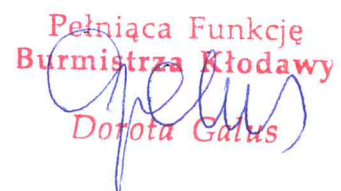 Pełniąca Funkcję
Burmistrza Kłodawy
Dorota Galus